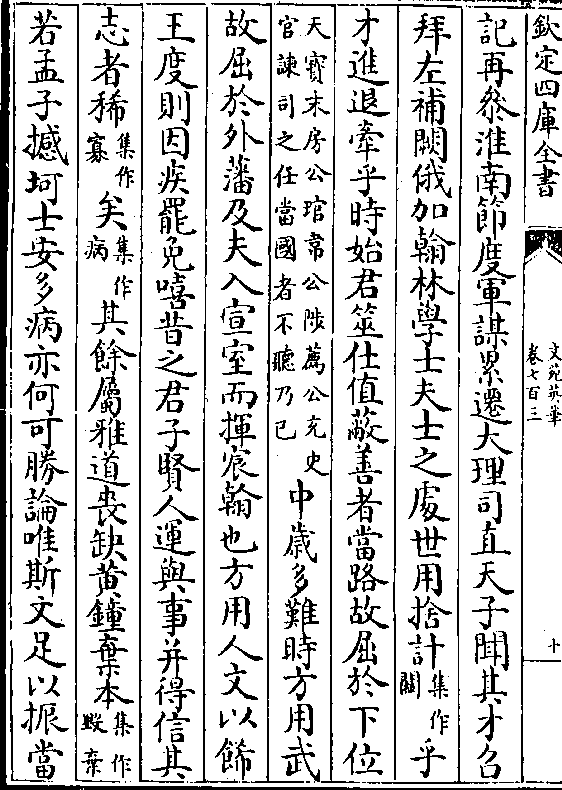 欽定四庫全書
文苑英華
卷七百三
十
記再叅淮南節度軍謀累遷大理司直天子聞其才召
拜左補闕俄加翰林學士夫士之處世用捨計集作關乎
才進退牽乎時始君筮仕值蔽善者當路故屈於下位
天寶末房公琯韋公陟薦公充史官諫司之任當國者不聽乃已中歲多難時方用武
故屈於外藩及夫入宣室而揮宸翰也方用人文以飾
王度則因疾罷免嘻昔之君子賢人運與事并得信其
志者稀集作寡矣集作病其餘屬雅道喪缺黄鐘棄本集作毁棄
若孟子撼坷士安多病亦何可勝論唯斯文足以振當